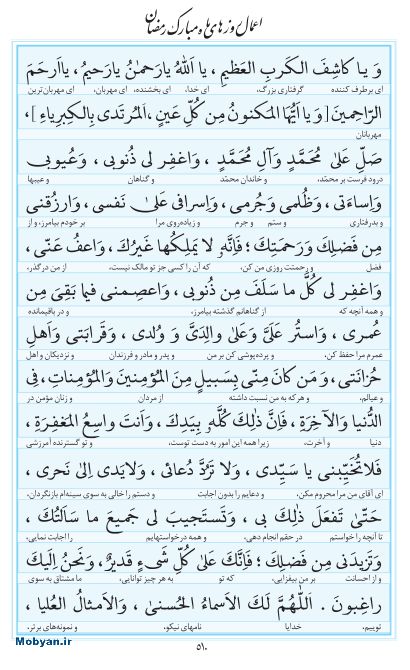 اعمال روزهای ماه مبارک رمضان
وَ یـا کاشِفَ الکَربِ العَظیمِ ، یا اَللهُ یارَحمٰنُ یارَحیمُ ، یااَرحَمَ
ای برطرف کننده گرفتاری بزرگ، ای خدا، ای بخشنده، ای مهربان، ای مهربان‌ترین
الرّاحِمینَ [وَ یا اَیُّهَا المَکنونُ مِن کُلِّ عَینٍ ، اَلمُرتَدی بِالکِبرِیاءِ] ،
مهربانان
صَلِّ عَلیٰ مُحَمَّدٍ وَآلِ مُحَمَّدٍ ، وَاغفِر لی ذُنوبی ، وَعُیوبی
درود فرست بر محمّد، و خاندان محمّد و گناهان و عیبها
وَاِساءَتی ، وَظُلمی وَجُرمی ، وَاِسرافی عَلیٰ نَفسی ، وَارزُقنی
و بدرفتاری و ستم و جرم و زیاده‌روی مرا بر خودم بیامرز، و از
مِن فَضلِکَ وَرَحمَتِکَ ؛ فَاِنَّهُ لا یَملِکُها غَیرُکَ ، وَاعفُ عَنّی ،
فضل و رحمتت روزی من کن، که آن را کسی جز تو مالک نیست، از من درگذر،
وَاغفِر لی کُلَّ ما سَلَفَ مِن ذُنوبی ، وَاعصِمنی فیما بَقِیَ مِن
و همه آنچه که از گناهانم گذشته بیامرز، و در باقیمانده
عُمری ، وَاستُر عَلَیَّ وَعَلیٰ والِدَیَّ وَ وُلدی ، وَقَرابَتی وَاَهلِ
عمرم مرا حفظ کن، و پرده‌پوشی کن بر من و پدر و مادر و فرزندان و نزدیکان و اهل
حُزانَتی ، وَمَن کانَ مِنّی بِسَبیلٍ مِنَ المُؤمِنینَ وَالمُؤمِناتِ، فِی
و عیالم، و هر که به من نسبت داشته از مردان و زنان مؤمن در
الدُّنیا وَالآخِرَةِ، فَاِنَّ ذٰلِکَ کُلَّهُ بِیَدِکَ، وَاَنتَ واسِعُ المَغفِرَةِ،
دنیا و آخرت، زیرا همه این امور به دست توست، و تو گسترنده آمرزشی
فَلاتُخَیِّبنی یا سَیِّدی ، وَلا تَرُدَّ دُعائی ، وَلایَدی اِلیٰ نَحری ،
ای آقای من مرا محروم مکن، و دعایم را بدون اجابت و دستم را خالی به سوی سینه‌ام بازنگردان،
حَتّیٰ تَفعَلَ ذٰلِکَ بی ، وَتَستَجیبَ لی جَمیعَ ما سَأَلتُکَ ،
تا آنچه را خواستم در حقم انجام دهی، و همه درخواستهایم را اجابت نمایی،
وَتَزیدَنی مِن فَضلِکَ ؛ فَاِنَّکَ عَلیٰ کُلِّ شَیءٍ قَدیرٌ، وَنَحنُ اِلَیکَ
و از احسانت بر من بیفزایی، که تو به هر چیز توانایی، ما مشتاق به سوی
راغِبونَ . اَللّٰهُمَّ لَکَ الاَسماءُ الحُسنیٰ ، وَالاَمثالُ العُلیا ،
توییم. خدایا نامهای نیکو، و نمونه‌های برتر.
۵۱۰
Mobyan.ir